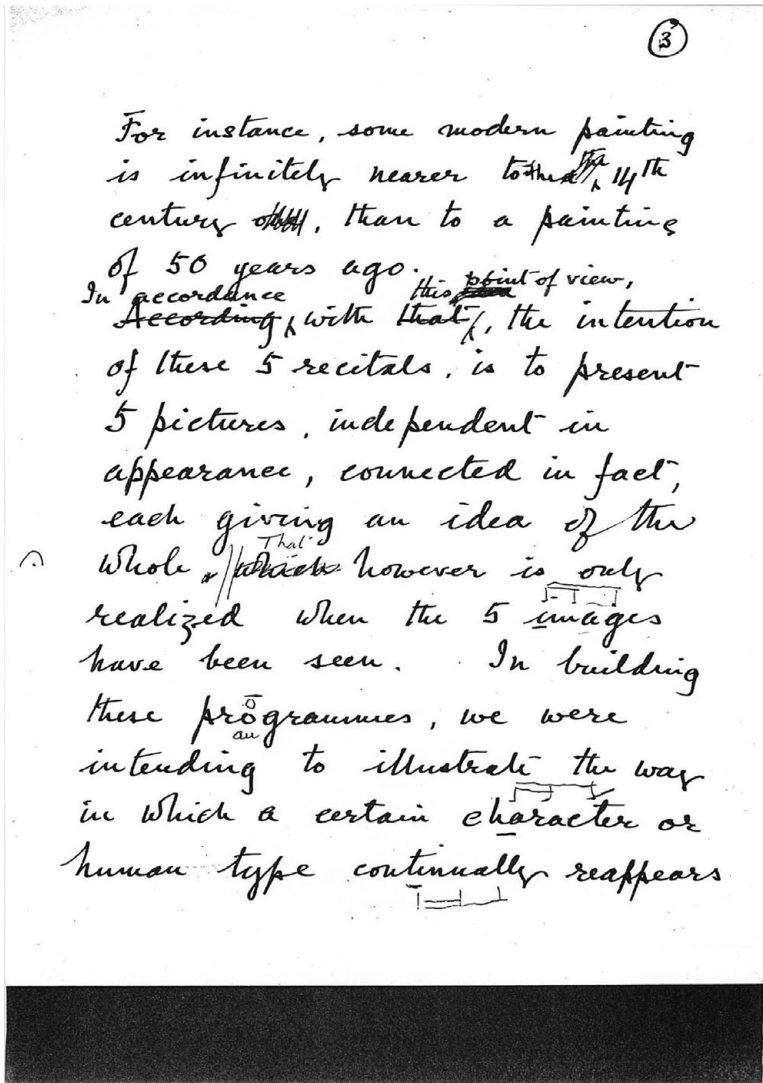 3
For instance, some modern painting
is infinitely nearer to 14th
century, than to a painting
of 50 years ago.
In accordance this point of view,
According with that, the intention
of these 5 recitals, is to present
5 pictures, independent in
appearance, connected in fact,
each giving an idea of the
That
whole. which however is only
realized when the 5 images
have been seen. In building
these programmes, we were
au
intending to illustrate the way
in which a certain character or
human type continually reappears